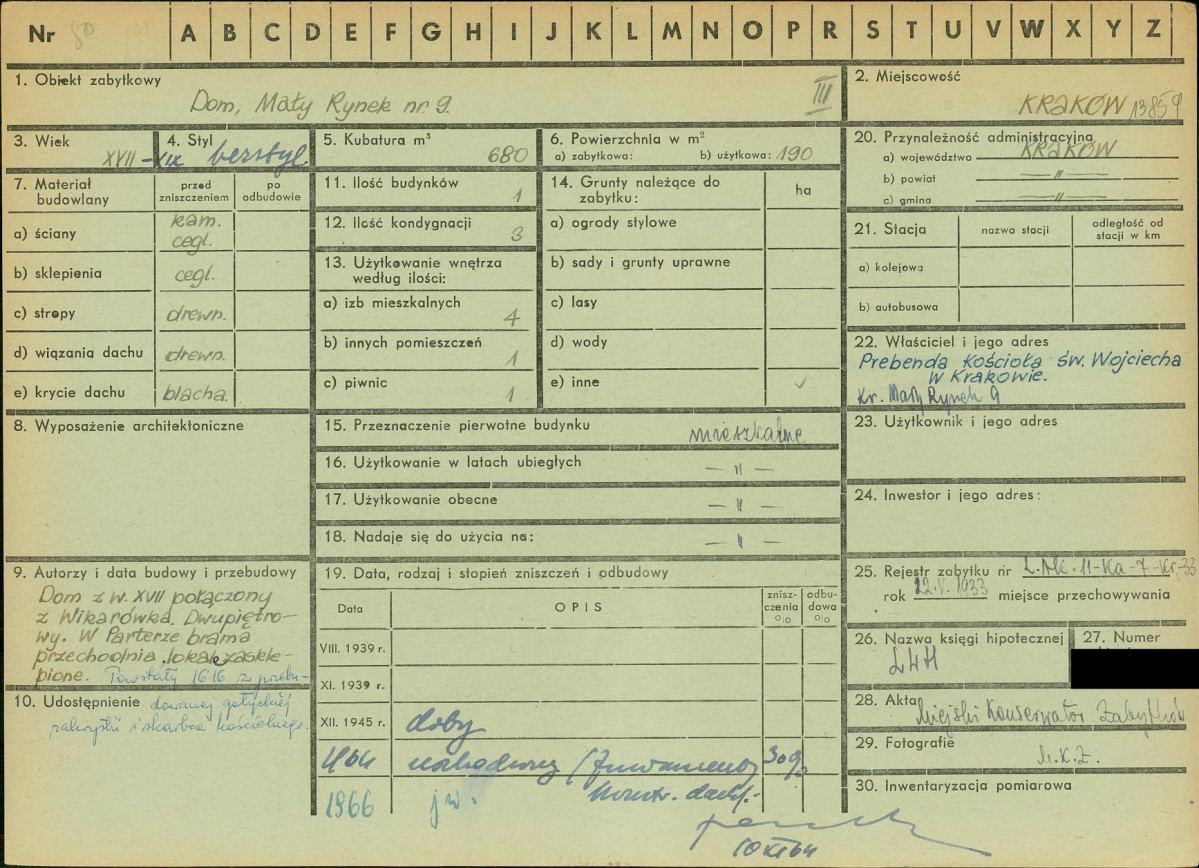 Nr 50 A B C D E F G H I J K L M N O P R S T U V W X Y Z
1. Obiekt zabytkowy
Dom, Mały Rynek nr 9.
III
2. Miejscowość
KRAKÓW 13859
3. Wiek
XVII-XIX
4. Styl
bezstyl.
5. Kubatura m³
680
6. Powierzchnia w m²
a) zabytkowa: b) użytkowa: 190
20. Przynależność administracyjna
a) województwo KRAKÓW
b) powiat —"—
c) gmina —"—
7. Materiał budowlany
przed zniszczeniem
po odbudowie
a) ściany
kam.
cegl.
b) sklepienia cegl.
c) stropy drewn.
d) wiązania dachu drewn.
e) krycie dachu blacha.
11. Ilość budynków 1
12. Ilość kondygnacji 3
13. Użytkowanie wnętrza
według ilości:
a) izb mieszkalnych 4
b) innych pomieszczeń 1
c) piwnic 1
14. Grunty należące do
zabytku:
ha
a) ogrody stylowe
b) sady i grunty uprawne
c) lasy
d) wody
e) inne ✓
21. Stacja
nazwa stacji
odległość od
stacji w km
a) kolejowa
b) autobusowa
22. Właściciel i jego adres
Prebenda Kościoła św. Wojciecha
w Krakowie.
Kr. Mały Rynek 9
8. Wyposażenie architektoniczne
15. Przeznaczenie pierwotne budynku
mieszkalne
16. Użytkowanie w latach ubiegłych — " —
17. Użytkowanie obecne — " —
18. Nadaje się do użycia na: — " —
23. Użytkownik i jego adres
24. Inwestor i jego adres:
9. Autorzy i data budowy i przebudowy
Dom z w. XVII połączony
z Wikarówką. Dwupiętro-
wy. W Parterze brama
przechodnia, lokale zaskle-
pione. Powstały 1616 z przebu-
10. Udostępnienie dowanej gotyckiej
zakrystii i skarbca kościelnego.
19. Data, rodzaj i stopień zniszczeń i odbudowy
Data
OPIS
znisz-
czenia
%
odbu-
dowa
%
VIII. 1939 r.
XI. 1939 r.
XII. 1945 r. dobry
1964 30%
konstr. dach.-
1966 jw.
10 XI 64
25. Rejestr zabytku nr L.AK.11-Ka-7-Kr-33
rok 22.V.1933 miejsce przechowywania
26. Nazwa księgi hipotecznej
LWH
27. Numer
28. Akta Miejski Konserwator Zabytków
29. Fotografie
M.K.Z.
30. Inwentaryzacja pomiarowa